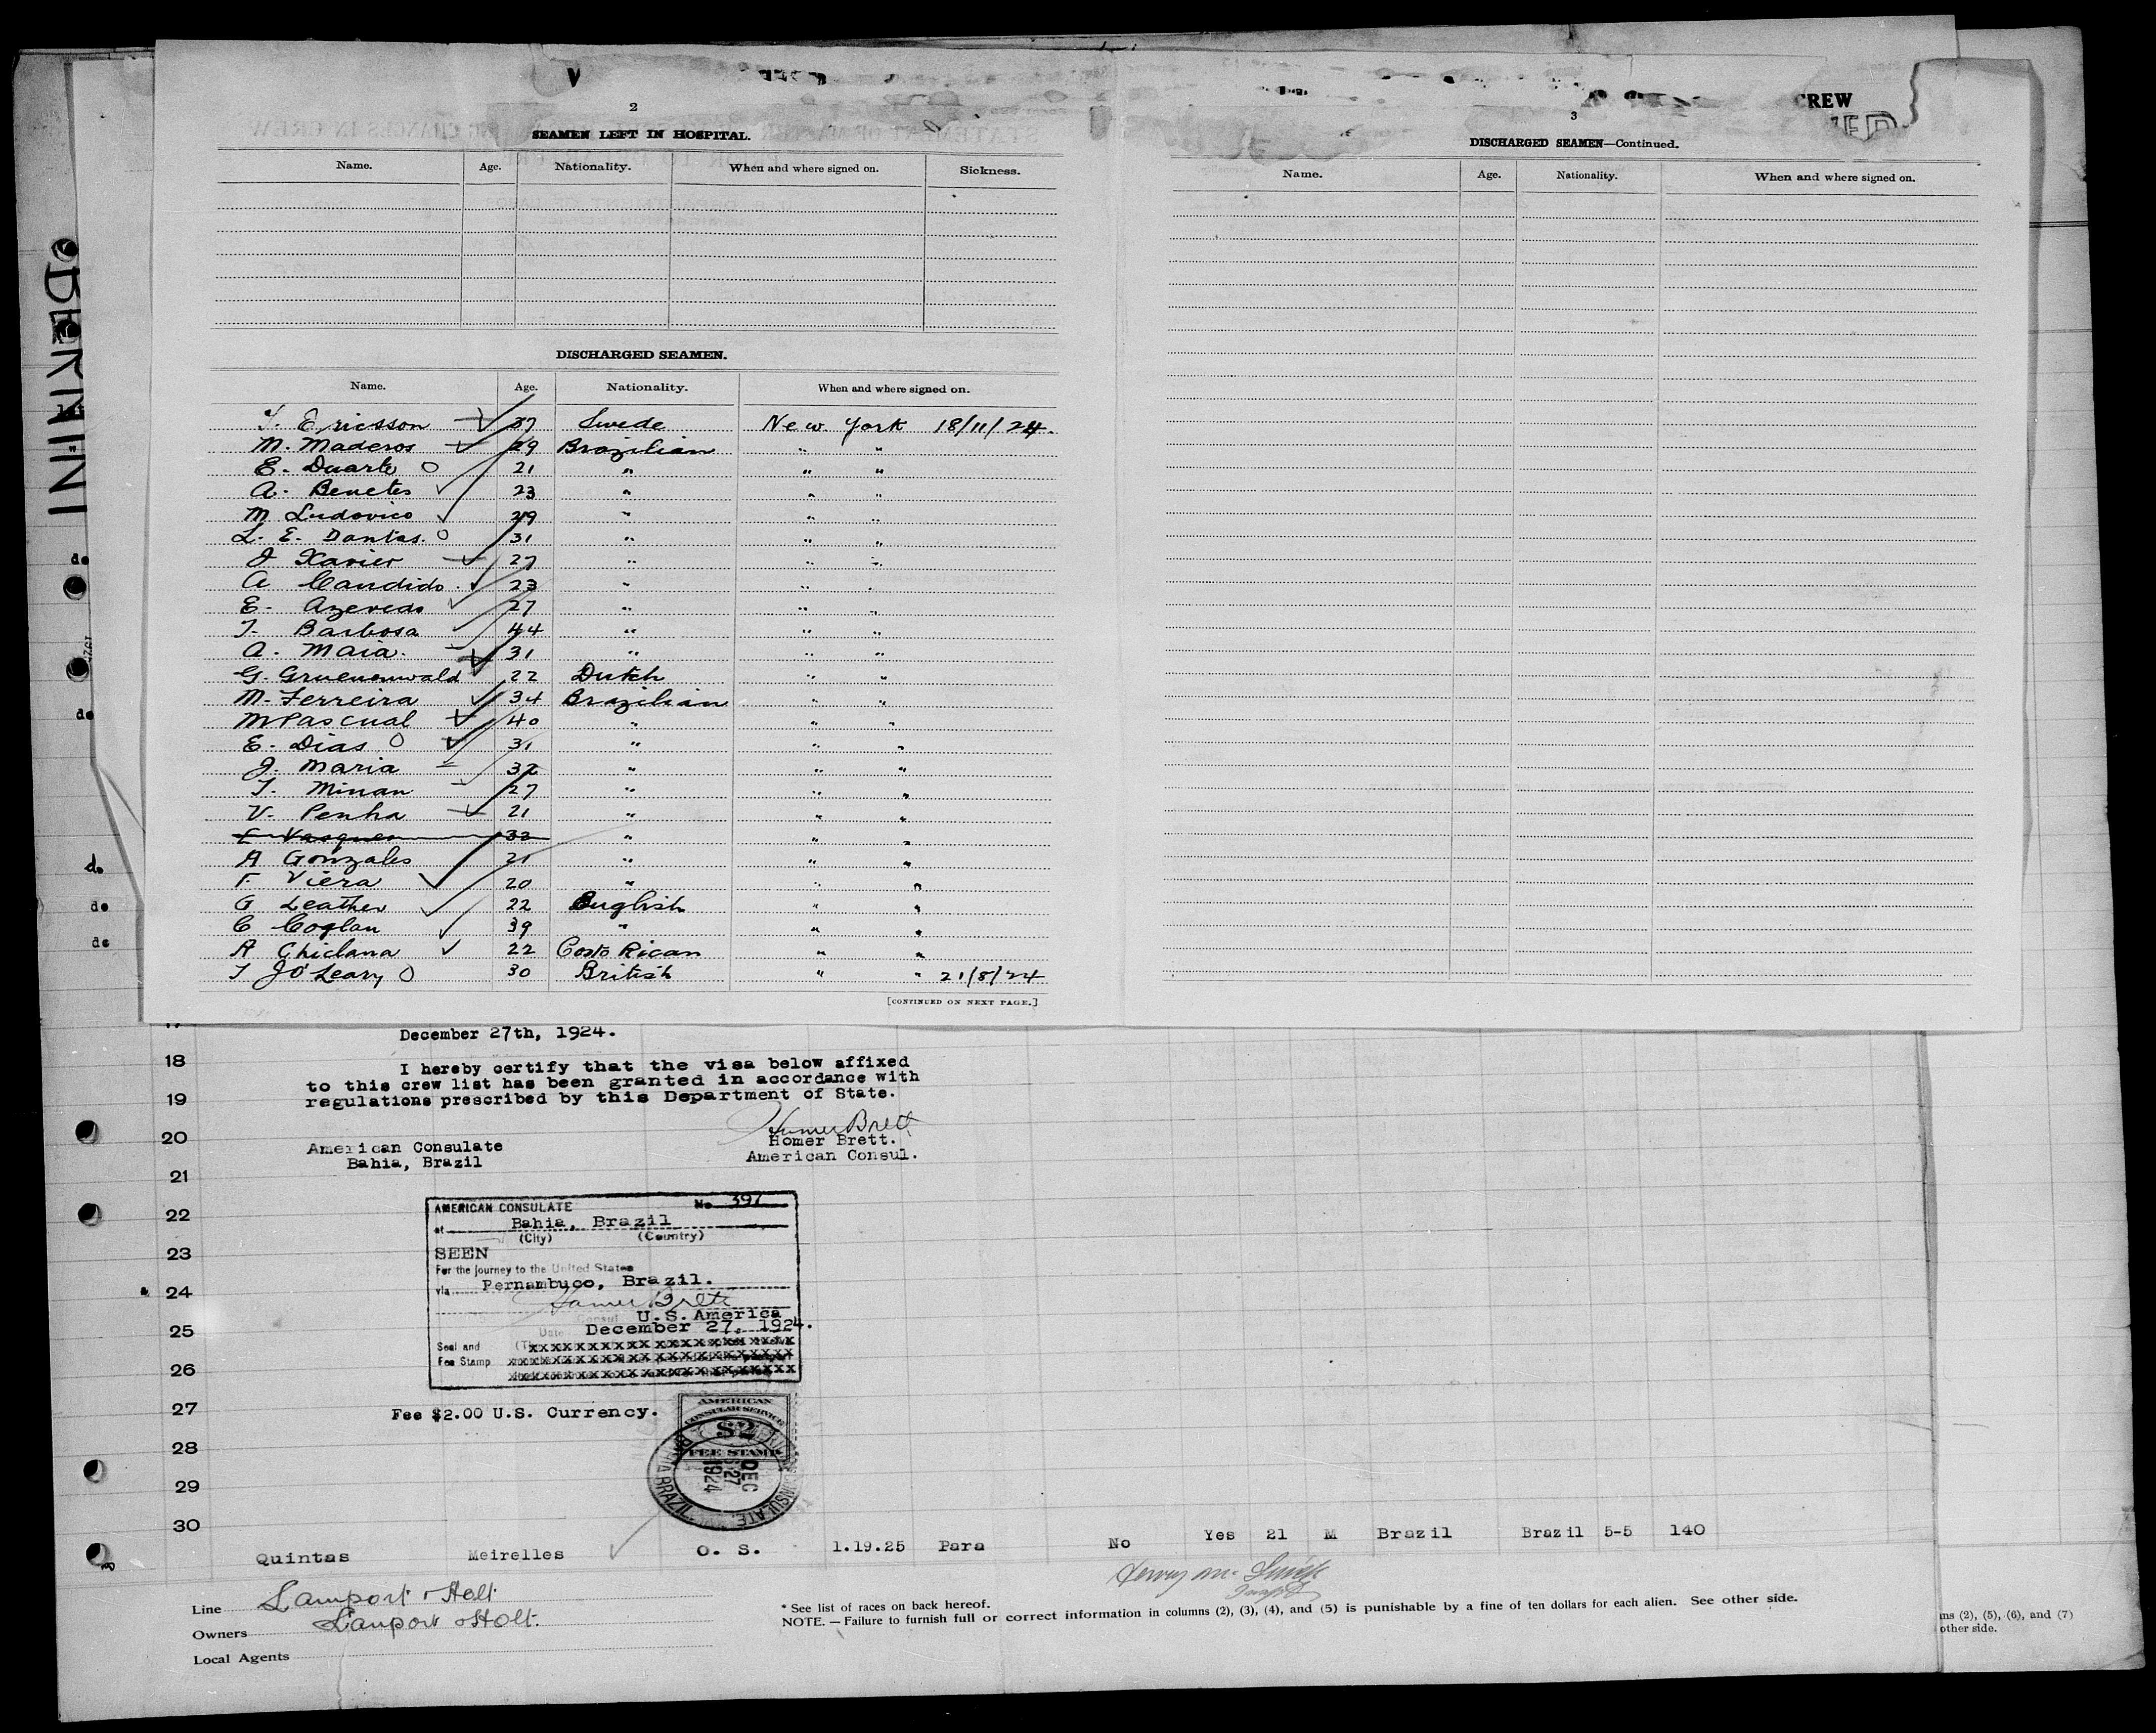 BERNINI
2
SEAMEN LEFT IN HOSPITAL.
Name. Age. Nationality. When and where signed on. Sickness.
DISCHARGED SEAMEN.
Name. Age. Nationality. When and where signed on.
Ericsson 37 Swede New York 18/11/24.
M. Maderos 29 Brazilian " "
E. Duarte O 21 " " "
A. Benetes 23 " " "
M Ludovico 29 " " "
L. E. Dantas. O 31 " " "
J Xavier 27 " " "
A Candido. 23 " " "
E. Azevedo 27 " " "
T. Barbosa 44 " " "
A. Maia. 31 " " "
G. Gruenenwald 22 Dutch " "
M. Ferreira 34 Brazilian " "
M Pascual 40 " " "
E. Dias O 31 " " "
J. Maria 32 " " "
T. Minan 27 " " "
V. Penha 21 " " "
E Vasques 32 " " "
A Gonzales 21 " " "
F. Viera 20 " " "
G Leather 22 English " "
C Coglan 39 " " "
A Chiclana 22 Costo Rican " "
T J O'Leary O 30 British " " 21/8/24
[CONTINUED ON NEXT PAGE.]
CREW
3
DISCHARGED SEAMEN—Continued.
Name. Age. Nationality. When and where signed on.
do
do
do
do
do
17
December 27th, 1924.
18
I hereby certify that the visa below affixed
to this crew list has been granted in accordance with
19
regulations prescribed by this Department of State.
Homer Brett
20
Homer Brett.
American Consulate American Consul.
Bahia, Brazil
21
22
AMERICAN CONSULATE No 397
at Bahia, Brazil
(City) (Country)
23
SEEN
For the journey to the United States
via Pernambuco, Brazil.
24
Homer Brett
Consul U.S. America
25
Date December 27, 1924.
Seal and
Fee Stamp
26
27
Fee $2.00 U.S. Currency.
AMERICAN
CONSULAR SERVICE
$2
FEE STAMP
DEC
27
1924
BAHIA BRAZIL
28
29
30
Quintas Meirelles O. S. 1.19.25 Para No Yes 21 M Brazil Brazil 5-5 140
Line Lamport & Holt
Owners Lamport & Holt.
Local Agents
* See list of races on back hereof.
NOTE.—Failure to furnish full or correct information in columns (2), (3), (4), and (5) is punishable by a fine of ten dollars for each alien. See other side.
ms (2), (5), (6), and (7)
other side.